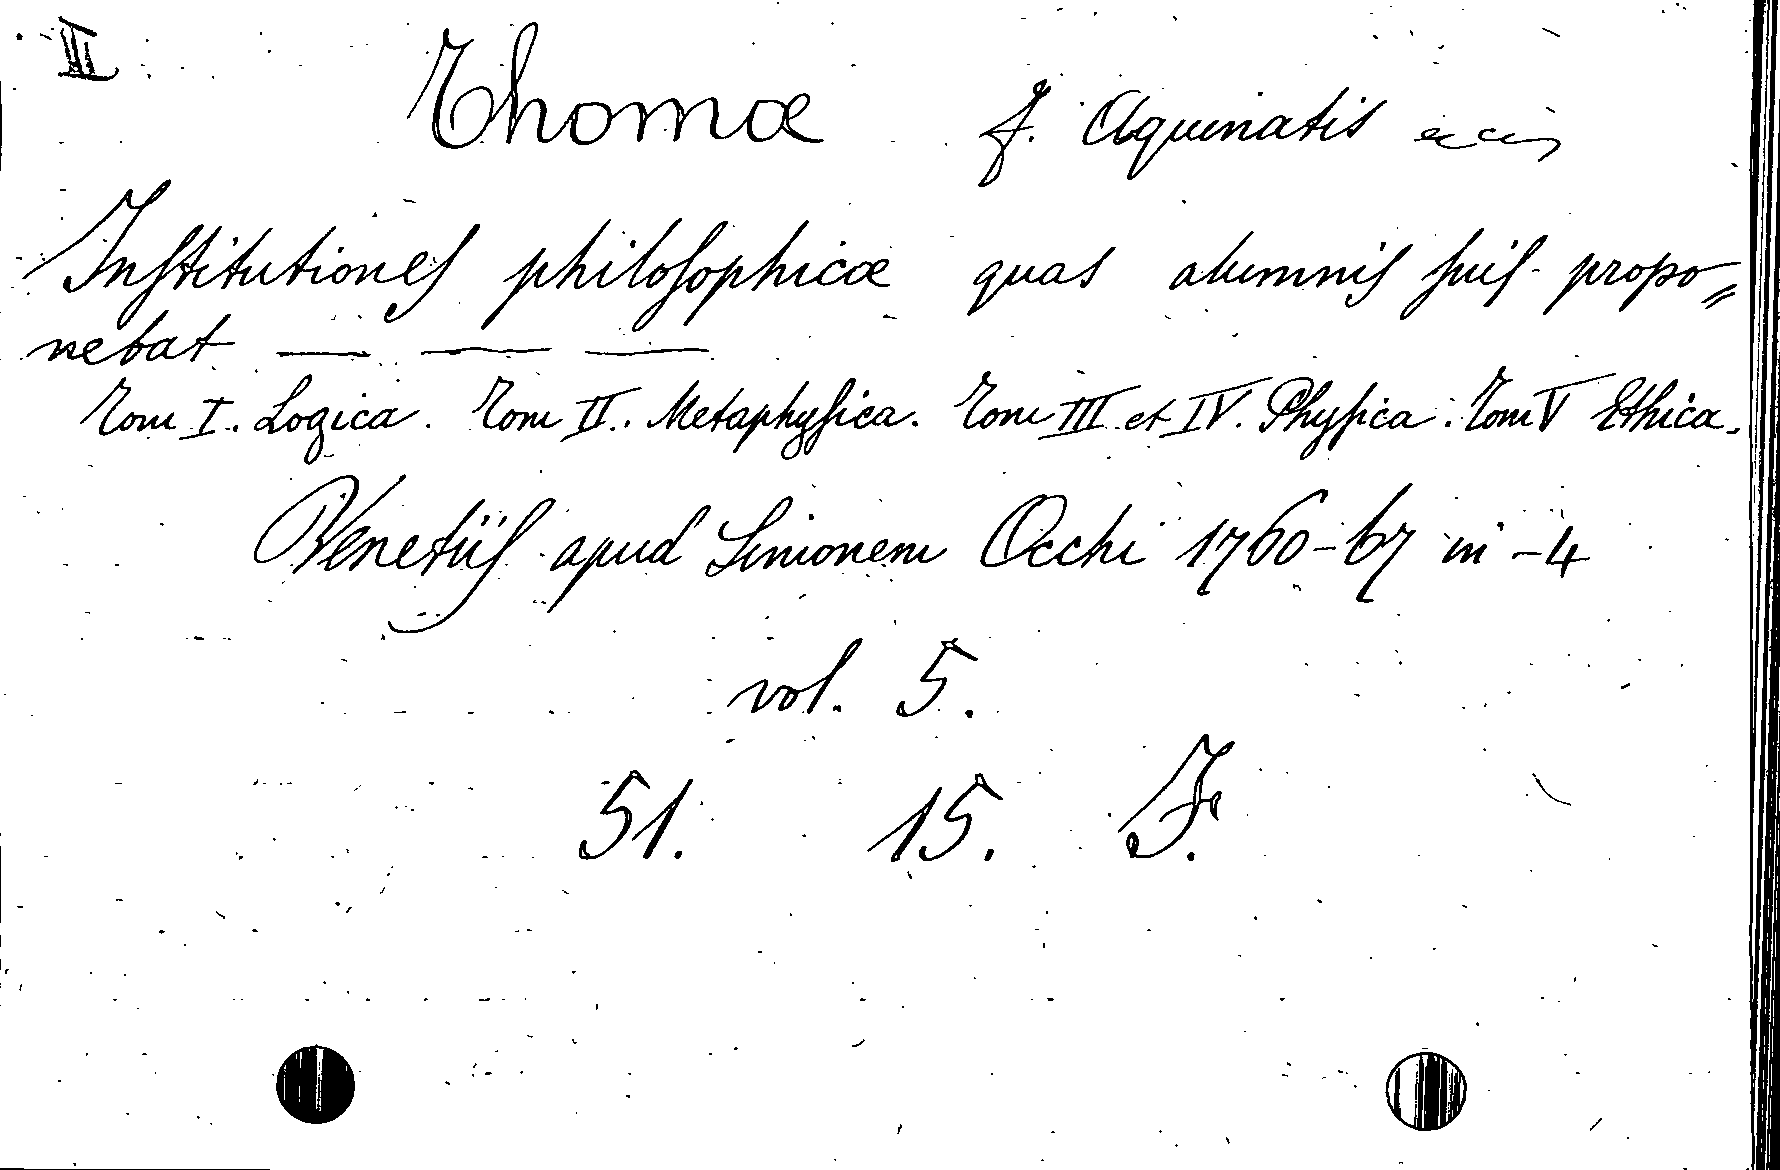 III
Thomæ f. Aquinatis
Inſtitutioneſ philoſophicæ quas alumniſ ſuiſ propo⸗
nebat — — —
Tom I. Logica. Tom II. Metaphyſica. Tom III et IV. Phyſica. Tom V Ethica.
Venetiiſ apud Simonem Occhi 1760-67 in -4
vol. 5.
51. 15. F.